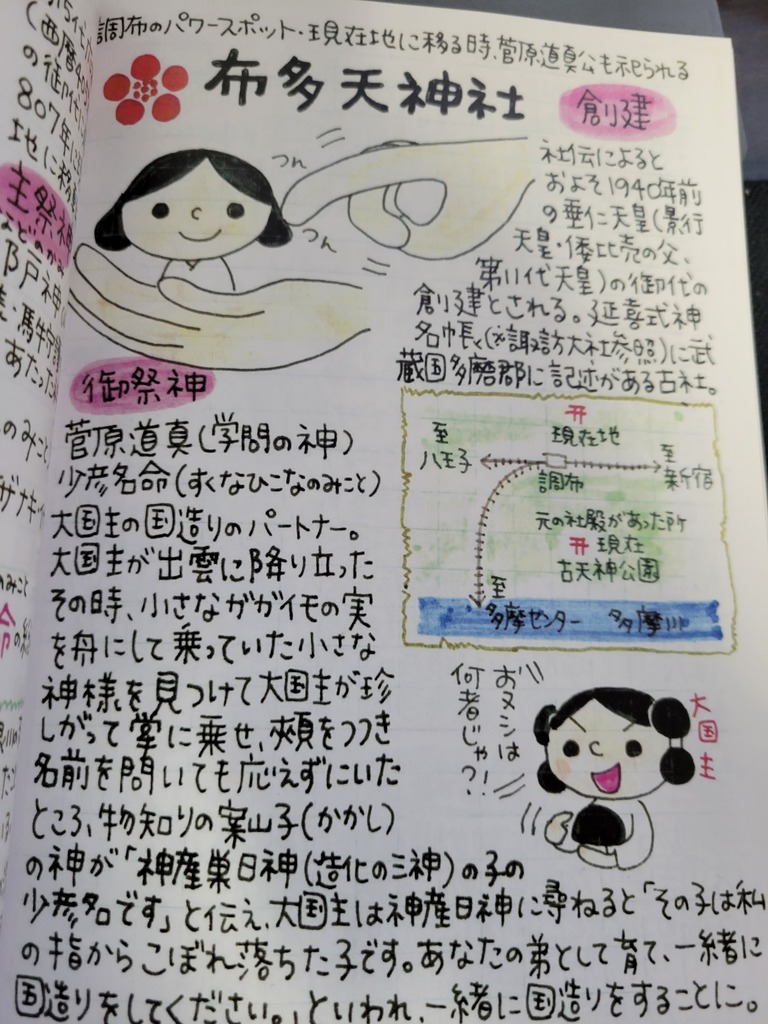 調布のパワースポット・現在地に移る時、菅原道真公も祀られる
布多天神社
創建
社伝によると
およそ1940年前
の垂仁天皇(景行
天皇・倭比売の父、
第11代天皇)の御代の
創建とされる。延喜式神
名帳(※諏訪大社参照)に武
蔵国多磨郡に記述がある古社。
つん
つん
御祭神
菅原道真(学問の神)
少彦名命(すくなひこなのみこと)
大国主の国造りのパートナー。
大国主が出雲に降り立った
その時、小さなガガイモの実
を舟にして乗っていた小さな
神様を見つけて大国主が珍
しがって掌に乗せ、頰をつつき
名前を問いても応えずにいた
ところ、物知りの案山子(かかし)
の神が「神産巣日神(造化の三神)の子の
少彦名です」と伝え、大国主は神産日神に尋ねると「その子は私
の指からこぼれ落ちた子です。あなたの弟として育て、一緒に
国造りをしてください。」といわれ、一緒に国造りをすることに。
現在地
至
八王子
至
新宿
調布
元の社殿があった所
現在
古天神公園
至
多摩センター
多摩川
おヌシは
何者じゃ?!
大国主
(西暦
の御代
807年
地に移
主祭神